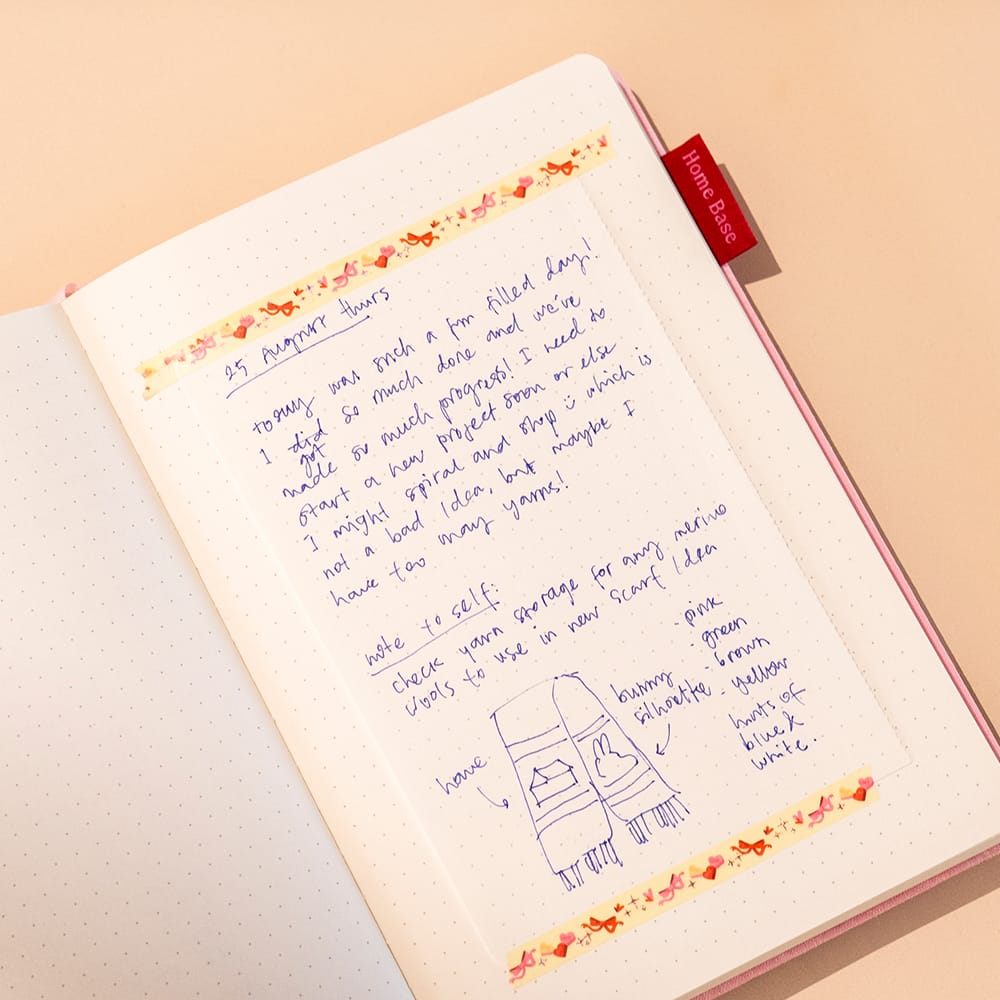 Home Base
25 August thurs
today was such a fun filled day!
I did so much done and we've
got
made so much progress! I need to
start a new project soon or else
I might spiral and shop :) which is
not a bad idea, but maybe I
have too many yarns!
note to self:
check yarn storage for any merino
wools to use in new scarf idea
- pink
- green
- brown
- yellow
hints of
blue &
white.
bunny
silhouette
house